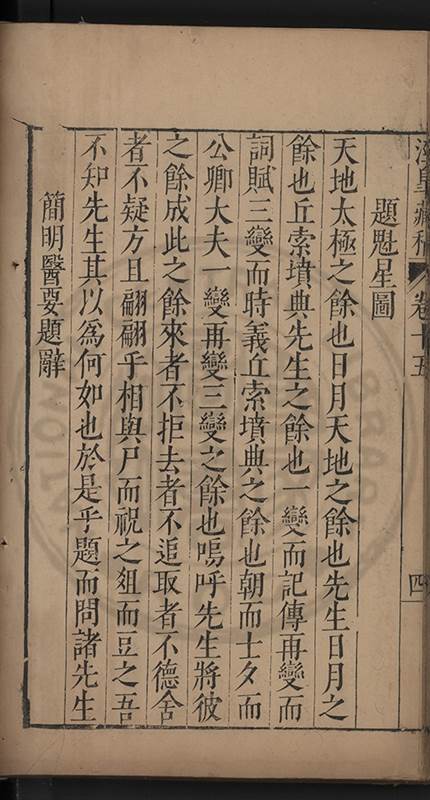 涇皐藏稿 卷十五 四
題魁星圖
天地太極之餘也日月天地之餘也先生日月之
餘也丘索墳典先生之餘也一變而記傳再變而
詞賦三變而時義丘索墳典之餘也朝而士夕而
公卿大夫一變再變三變之餘也嗚呼先生將彼
之餘成此之餘來者不拒去者不追取者不德舍
者不疑方且翩翩乎相與尸而祝之俎而豆之吾
不知先生其以爲何如也於是乎題而問諸先生
簡明醫要題辭